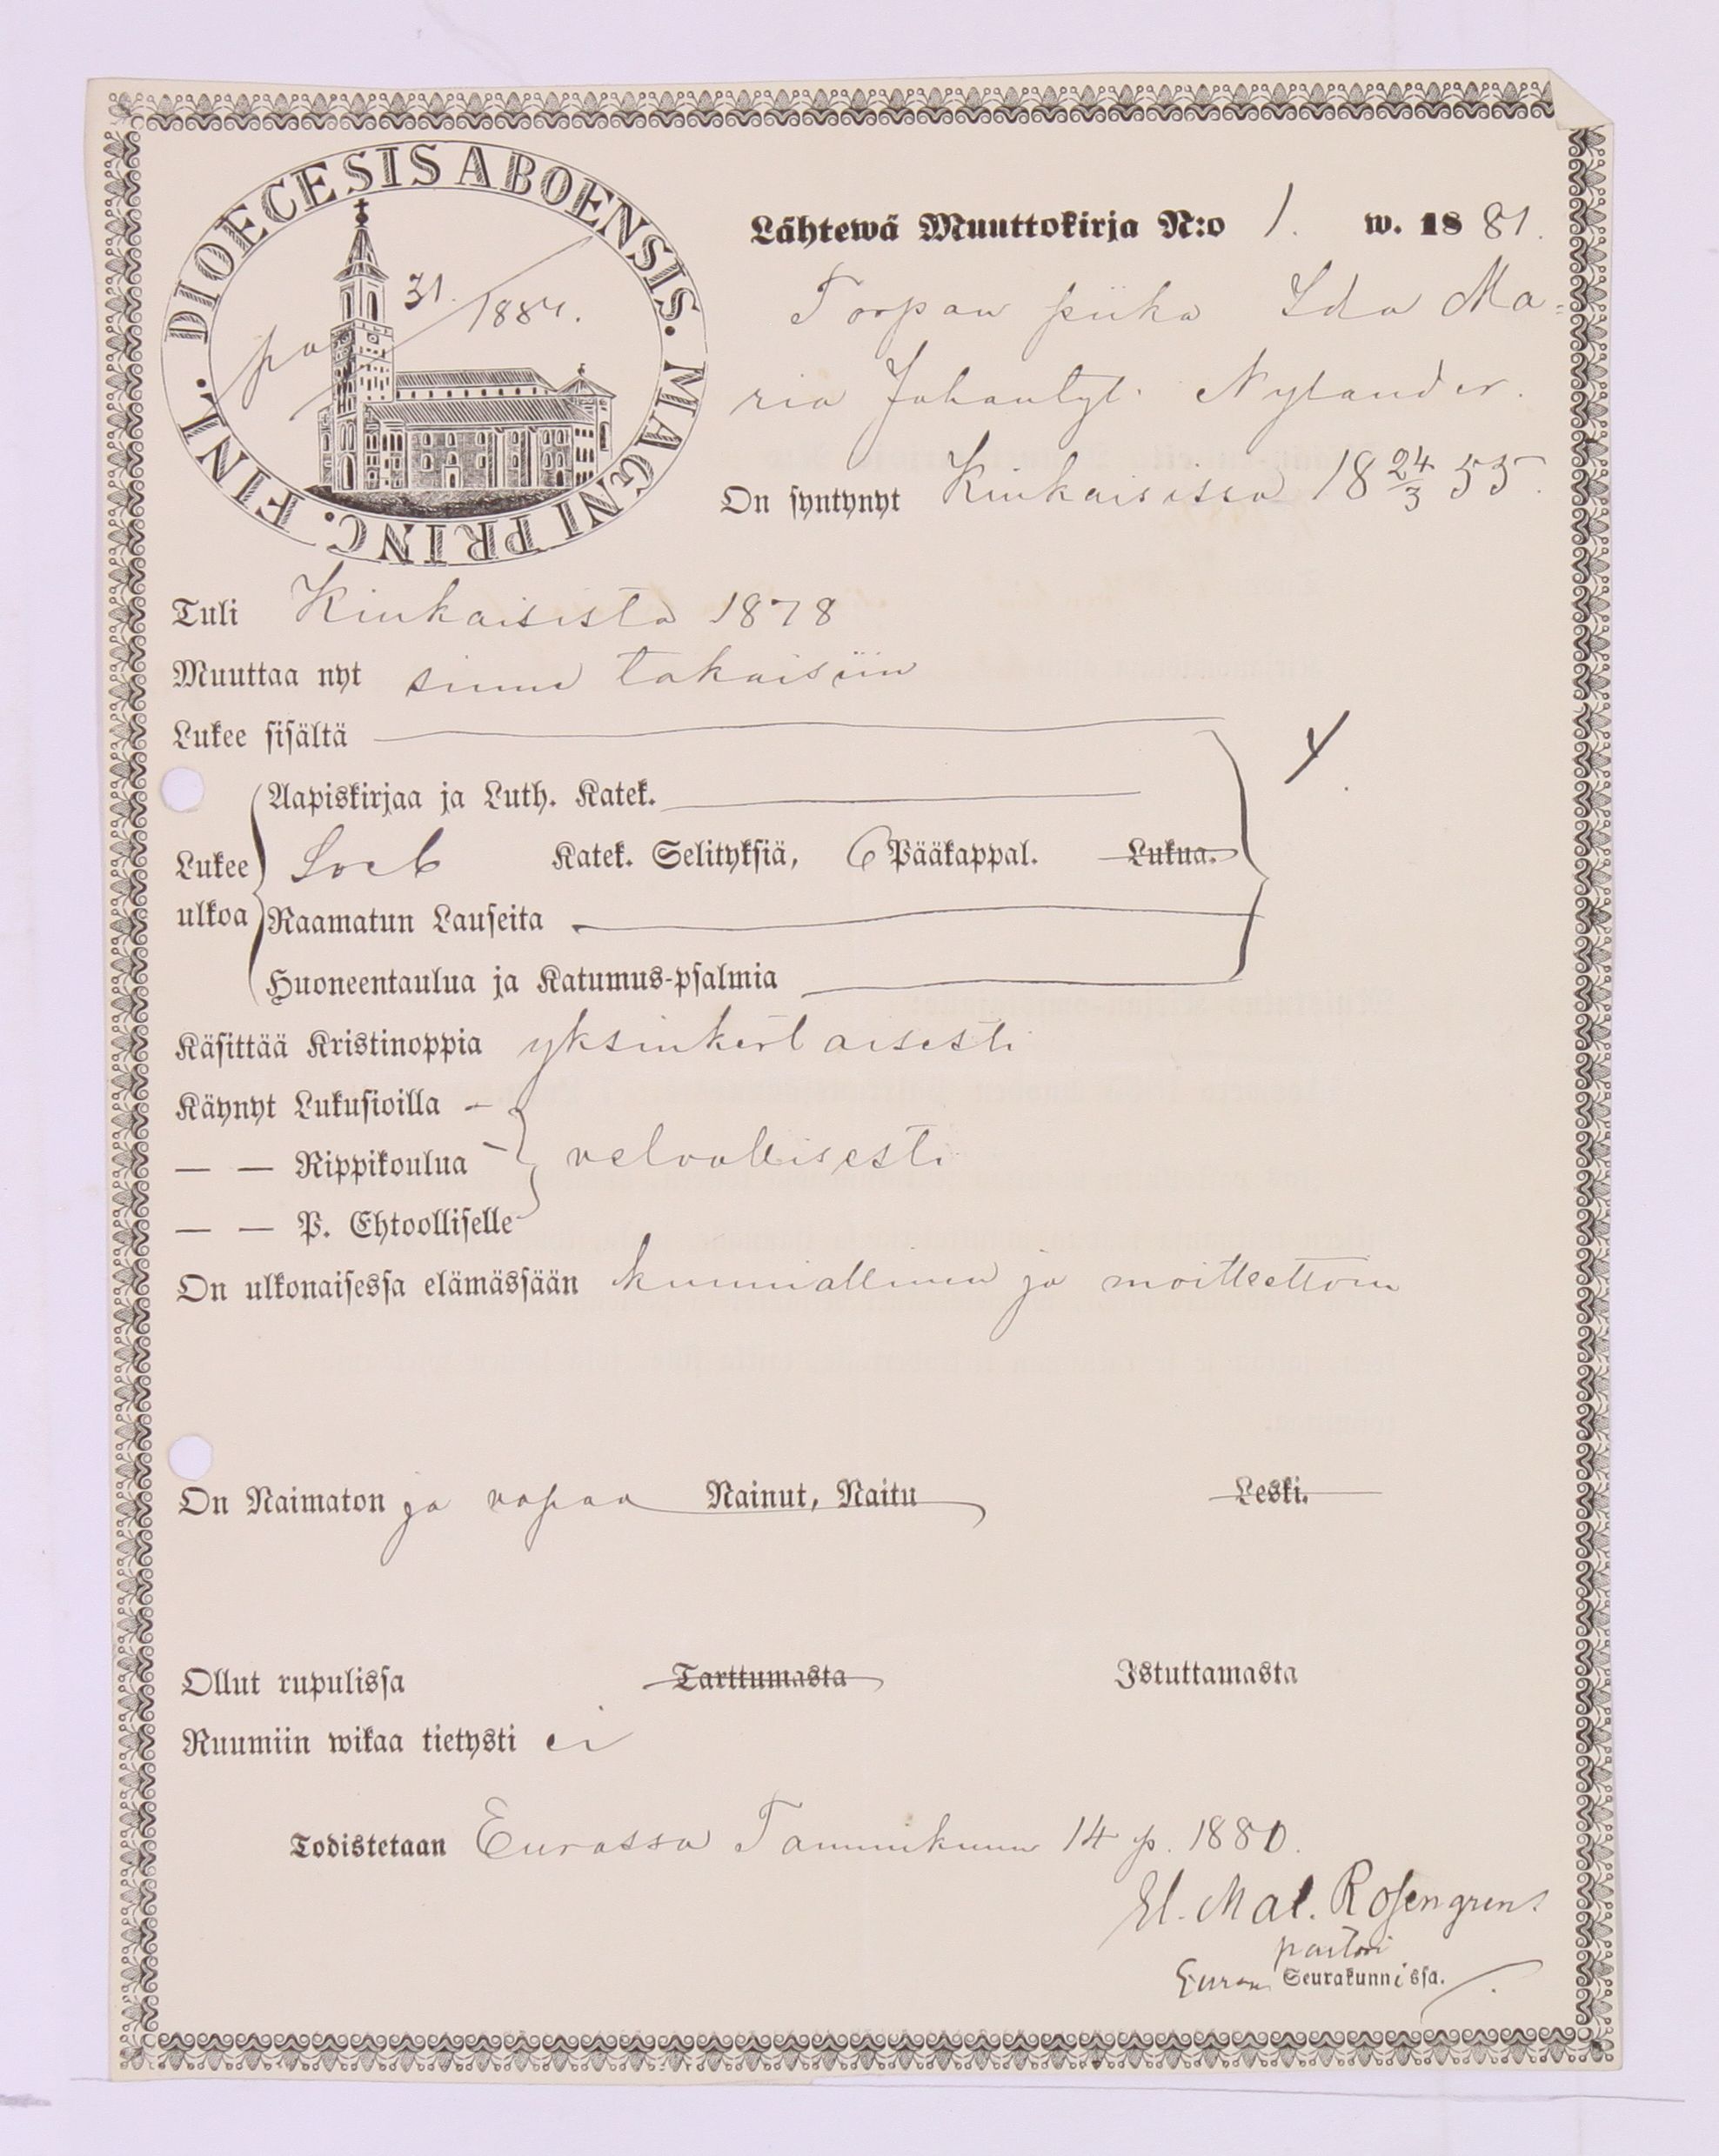 DIOECESIS ABOENSIS. MAGNI PRINC. FINL.
31. 1881.
Lähtewä Muuttokirja N:o 1. w. 1881.
Torpan piika Ida Ma=
ria Johantyt. Nylander.
On syntynyt Kiukaisissa 18 24/3 55.
Tuli Kiukaisista 1878
Muuttaa nyt sinne takaisiin
Lukee sisältä
Aapiskirjaa ja Luth. Katek.
Lukee Katek. Selityksiä, 6 Pääkappal. Lukua.
ulkoa Raamatun Lauseita
Huoneentaulua ja Katumus-psalmia
Käsittää Kristinoppia yksinkertaisesti
Käynyt Lukusioilla
— — Rippikoulua velvollisesti
— — P. Ehtoolliselle
On ulkonaisessa elämässään kunniallinen ja moitteettoin
On Naimaton ja vapaa Nainut, Naitu Leski.
Ollut rupulissa Tarttumasta Istuttamasta
Ruumiin wikaa tietysti ei
Todistetaan Eurassa Tammikuun 14 p. 1880.
El. Mat. Rosengren
pastori
Euran Seurakunnissa.